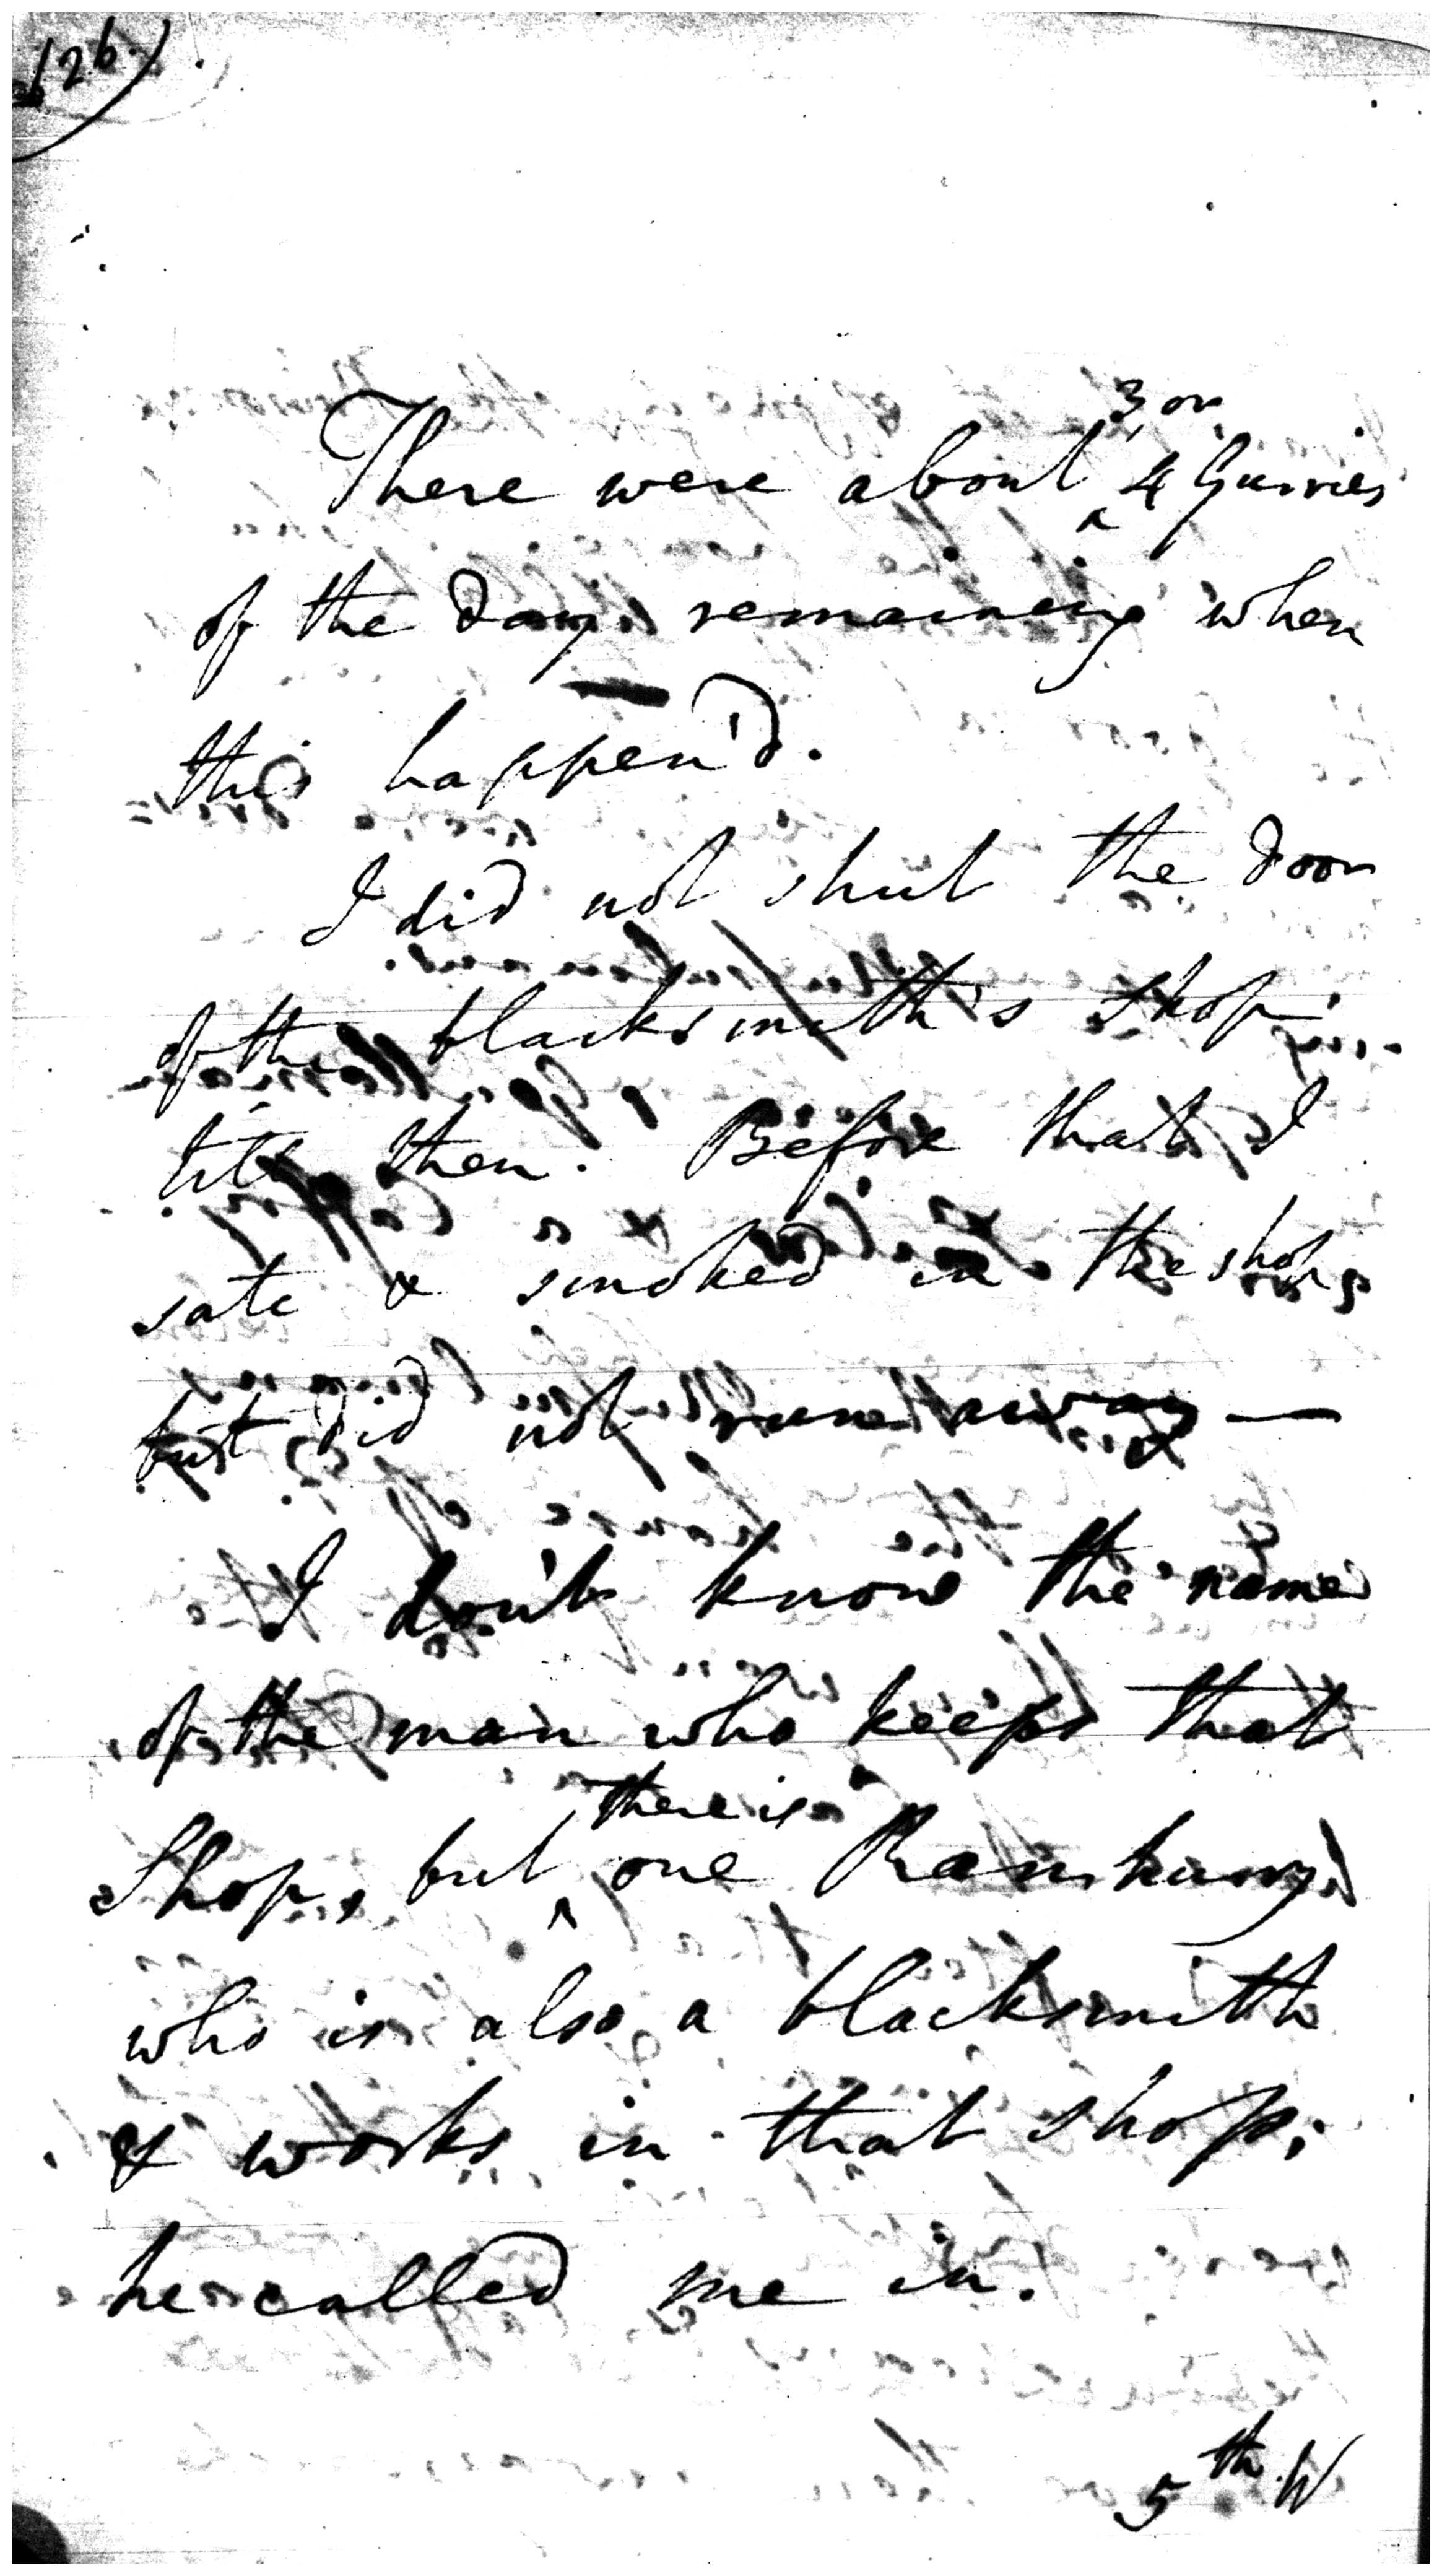 126.)
There were about ^3 or 4 Gurries
of the day remaining when
this happen'd.
I did not shut the door
of the blacksmith's shop
till then. Before that I
sate & smoked in the shop
but did not run away —
I don't know the name
of the man who keeps that
Shop, but ^there is one
who is also a blacksmith
& works in that shop;
he called me in.
5th. W